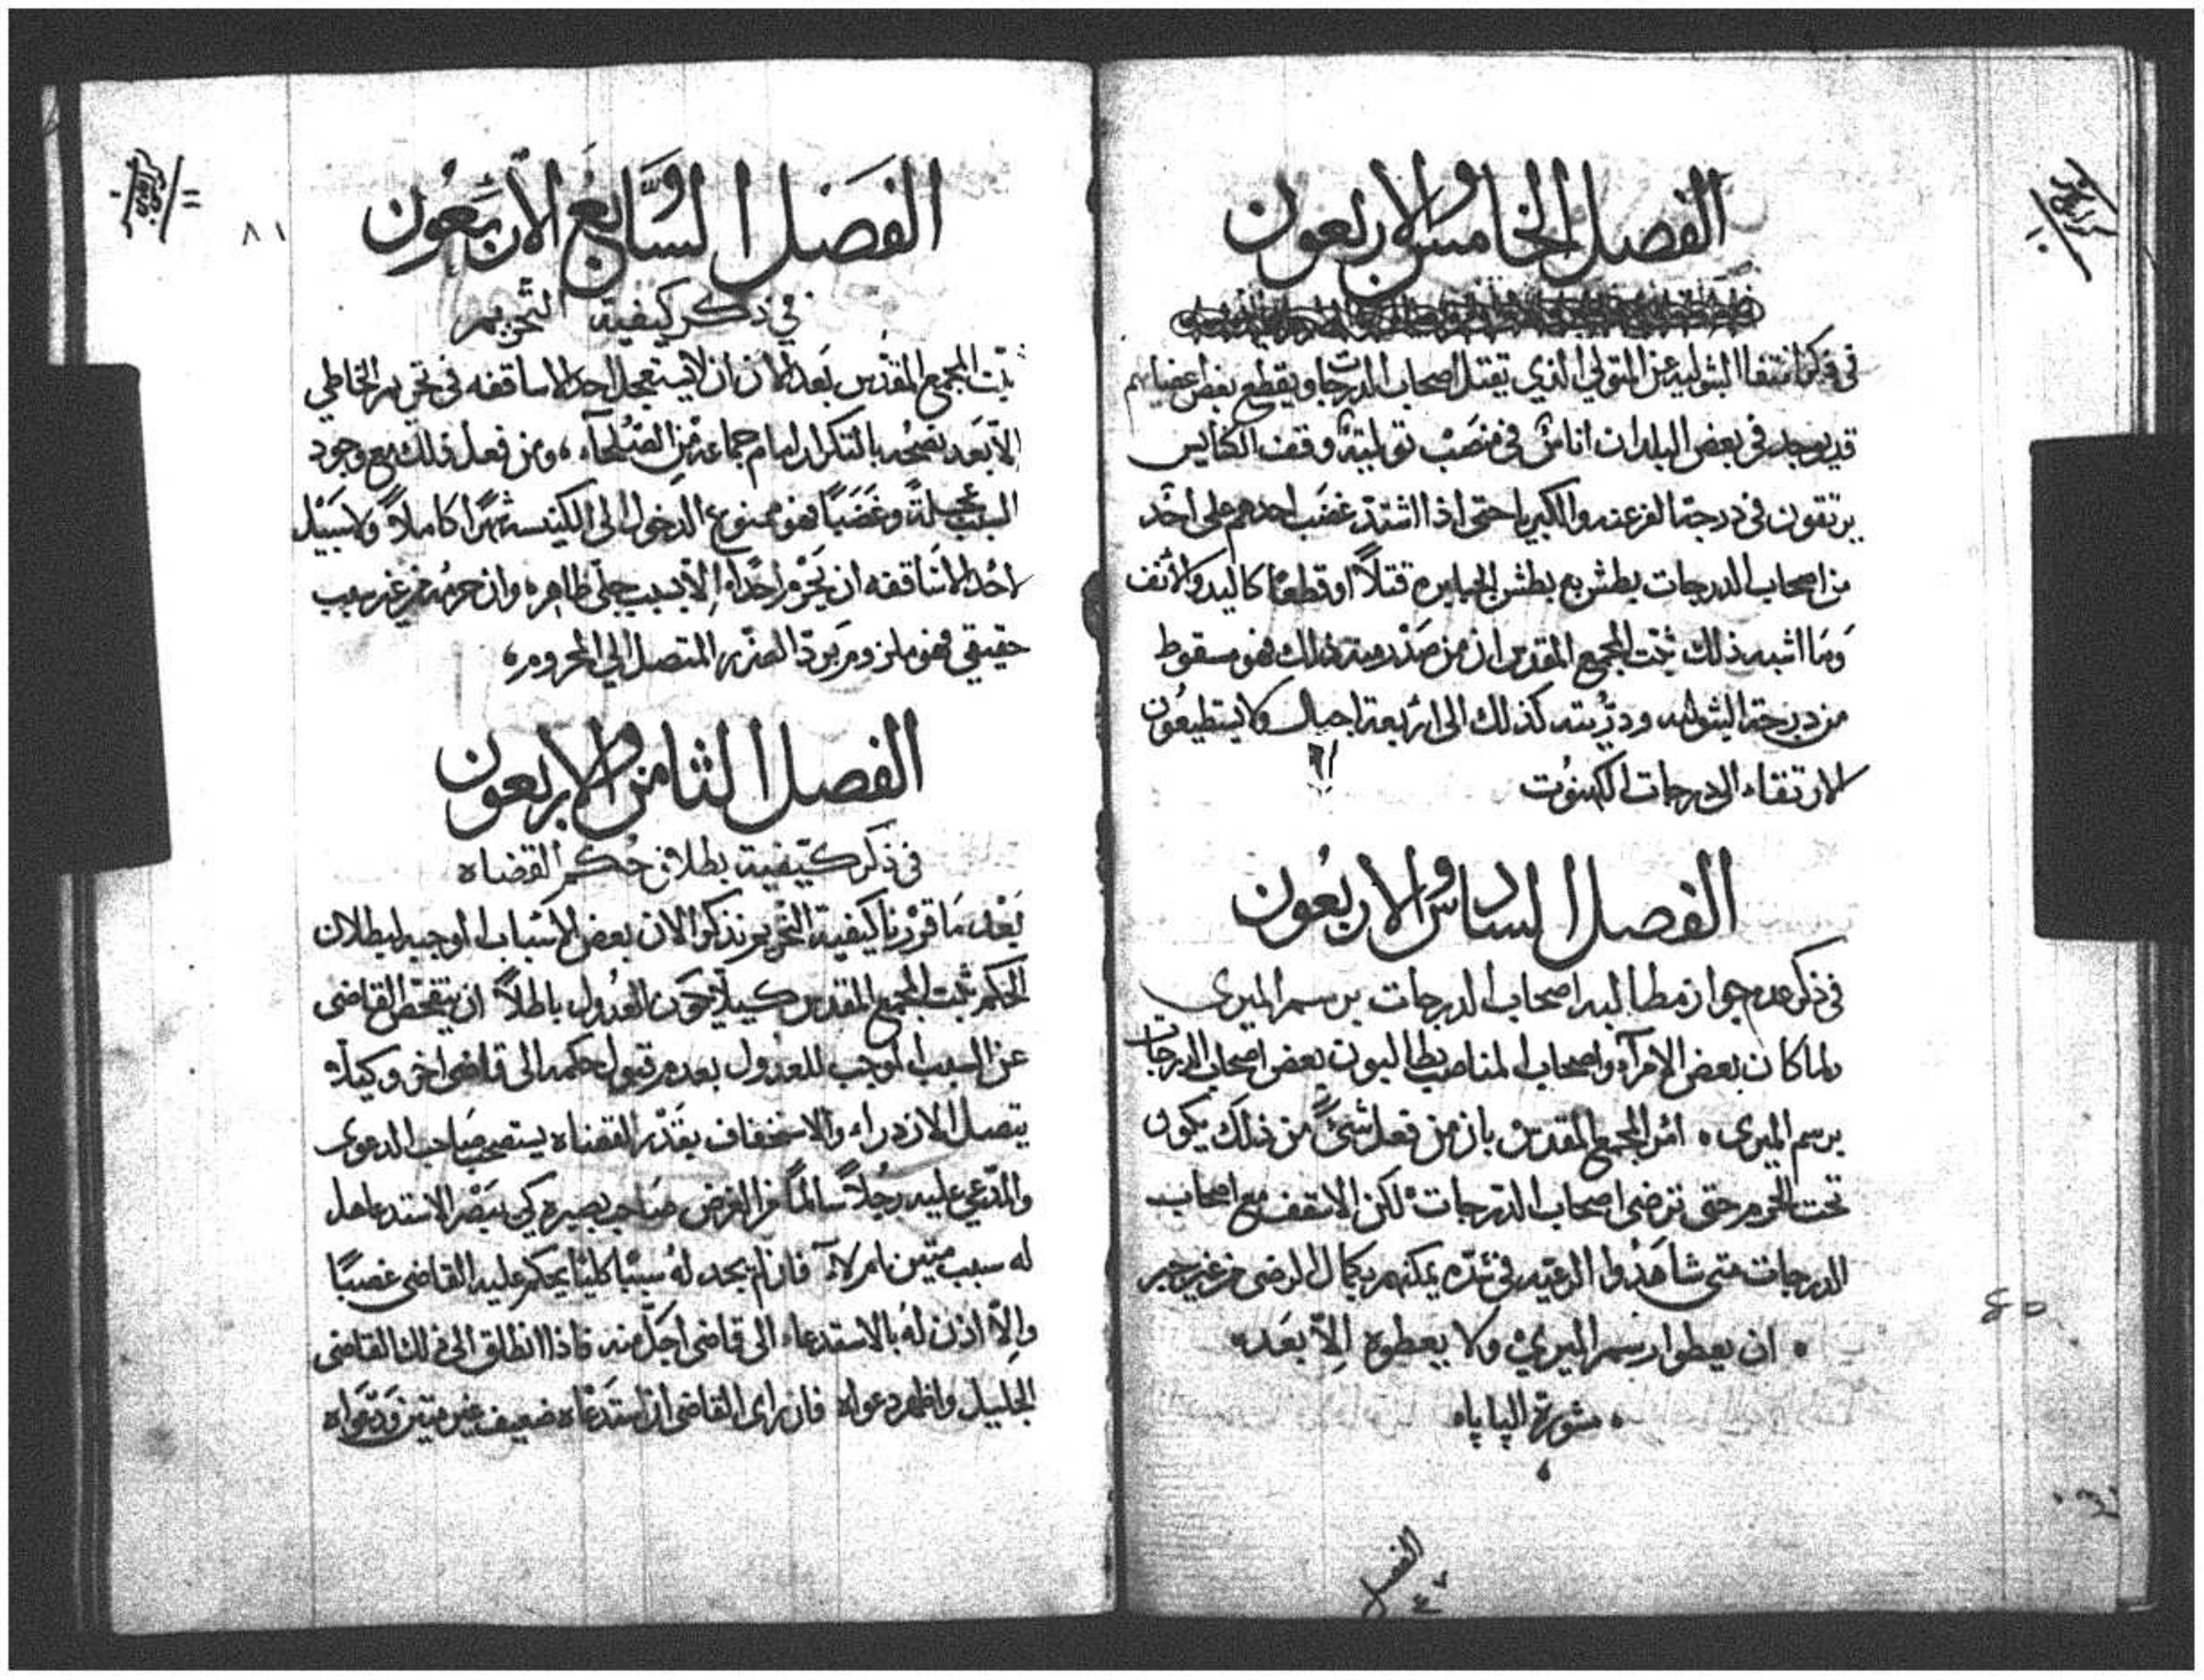 الفصل الخامس والاربعون
في ذكر انتفا الشوليه عن المتولي الذي يقتل اصحاب الدرجات او يقطع بعض اعضياهم
قد يوجد في بعض البلدان اناسٌ في منصب توليةِ وقف الكنايس
يرتقون في درجة الفرعنه والكبريا حتى اذا اشتد غضب احدهم على احد
من اصحاب الدرجات بطش به بطش الجبابره قتلاً او قطعًا كاليد والأنف
وَما اشبه ذلك ثبّت المجمع المقدس ان من صَدْر منه ذلك فهو مسقوط
من درجة الشوليه وذرّيته كذلك الى اربعة اجيال ولا يستطيعُون
الارتقاء الى درجات الكهنوُت
الفصل السادس والاربعُون
في ذكر عدم جواز مطالبه اصحاب الدرجات برسم الميرى
ولما كان بعض الامرآء واصحاب المناصب يطالبون بعض اصحاب الدرجات
برسم الميرى ٥ امْر المجمع المقدس بان من فعل شيءً من ذلك يكون
تحت الحرم حتى ترضى اصحاب الدرجات لكن الاسقف مع اصحاب
الدرجات متى شاهَدُوا الرعيّه في شدّه يمكنهم بكمال الرضى من غير جبر
ان يعطوا رسم الميريْ ولا يعطوه إلاّ بعَد
مشورة الپاپاه
الفصل
٤٧
٨١
الفَصَل السَّابعُ والأربَعُون
في ذكر كيفية التحريم
ثبّت المجمع المقدّس بَعد الان ان لا يستعجل احد الاساقفه في تحريم الخاطي
الاّ بَعد نصحُه بالتكرار امام جماعة مْن الصُلحآء، ومن فعل ذلك مع وجود
السبب عجلةً وغضَبًا فهو ممنوع الدخول الى الكنيسه شهرًا كاملاً ولا سَبيْل
لاحُد الاسَاقفه ان يَحْرم احدًا إلاّ بسبب جلّي ظاهره وان حرمُه من غير سبب
حقيقي فهو ملزوم بَردّ الضرّر المتصل الي المحروم،
الفصل الثامن والاربعون
في ذكر كيّفية بطلان حُكم القضاه
بَعْد مَا قررْنا كيفية التحريم نذكر الان بعض الاسْباب الموجبه لبطلان
الحكم ثبت المجمع المقدس كيلا يكَون العُدُول باطلاً ان يتفحصّ القاضى
عن السبب الموجب للعدُول بعدم قبول حكمه الى قاضي اخر وكيلا
يتصل الازدراء والاستخفاف بقَدْر القضاه يستصحب صَاحب الدعوى
والمدّعي عليه رجُلاً سالمًا من الغرض صَاحب بصيره كي يَبصْر الاستدعا هل
له سبب متين ام لاآ فان لم يجد لهُ سببًا كليًا يحكم عليه القاضى غصبًا
وإلاّ اذن لهُ بالاستدعاء الى قاضى اجلّ منه فاذا انطلق الى ذلك القاضى
الجليل واظهر دعواه فان راى القاضى ان استدعَاه ضعيف غير متين وَدعَواه